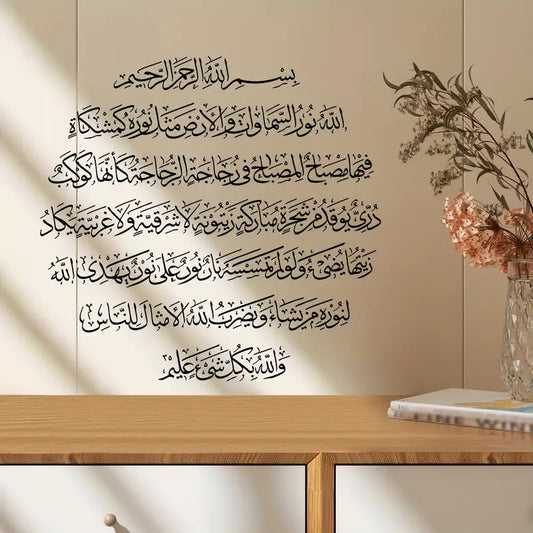 بسم الله الرحمن الرحيم
الله نور السماوات والأرض مثل نوره كمشكاة
فيها مصباح المصباح في زجاجة الزجاجة كأنها كوكب
دري يوقد من شجرة مباركة زيتونة لا شرقية ولا غربية يكاد
زيتها يضيء ولو لم تمسسه نار نور على نور يهدي الله
لنوره من يشاء ويضرب الله الأمثال للناس
والله بكل شيء عليم
FINE WINE